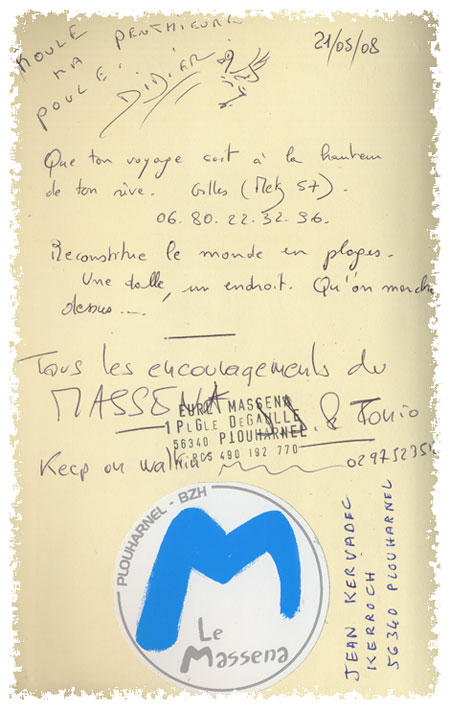 ROULE MA PENTHIEURE
POULE!
DIDIER
21/05/08
Que ton voyage soit à la hauteur
de ton rêve. Gilles (Metz 57).
06.80.22.32.96.
Reconstitue le monde en plages.
Une dalle, un endroit. Qu'on marche
dessus....
Tous les encouragements du
MASSENA & Tonio
EURL MASSENA
1 Pl Gle DeGAULLE
56340 PLOUHARNEL
RCS 490 192 770
Keep on walkin
02975235
JEAN KERVADEC
KERROCH
56340 PLOUHARNEL
PLOUHARNEL - BZH
M
Le
Massena